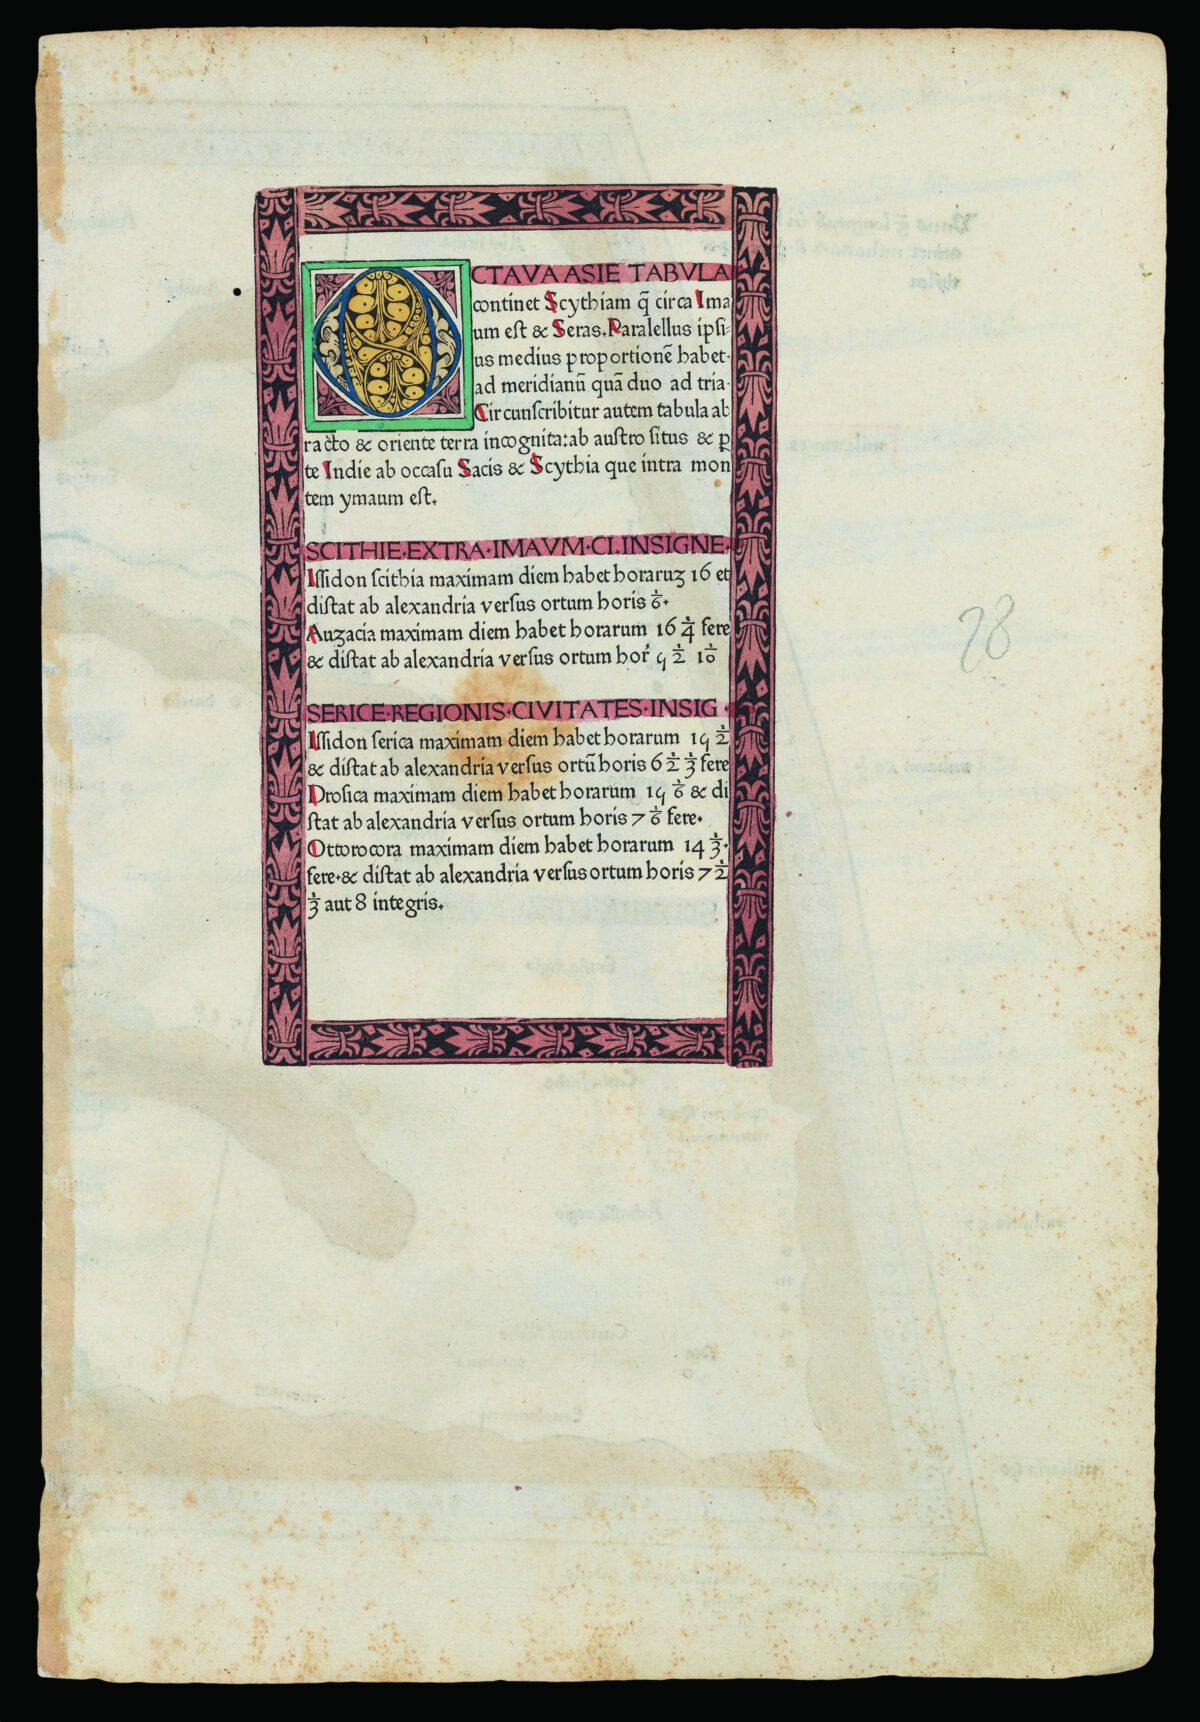 OCTAVA ASIE TABVLA
continet Scythiam q̃ circa Ima
um est & Seras. Paralellus ipsi-
us medius proportionẽ habet.
ad meridianũ quã duo ad tria.
Circunscribitur autem tabula ab
racto & oriente terra incognita: ab austro situs & ꝑ
te Indie ab occasu Sacis & Scythia que intra mon
tem ymaum est.
SCITHIE·EXTRA·IMAVM·CI·INSIGNE·
Issidon scithia maximam diem habet horaruʒ 16 et
distat ab alexandria versus ortum horis ⅙.
Auzacia maximam diem habet horarum 16 ¼ fere
& distat ab alexandria versus ortum hor̃ 9 ½ 1/10
SERICE·REGIONIS·CIVITATES·INSIG·
Issidon serica maximam diem habet horarum 19 ½
& distat ab alexandria versus ortũ horis 6 ½ ⅓ fere
Drosica maximam diem habet horarum 19 ⅙ & di
stat ab alexandria versus ortum horis 7 ⅙ fere.
Ottorocora maximam diem habet horarum 14 ⅓.
fere. & distat ab alexandria versus ortum horis 7 ½
⅓ aut 8 integris.
28